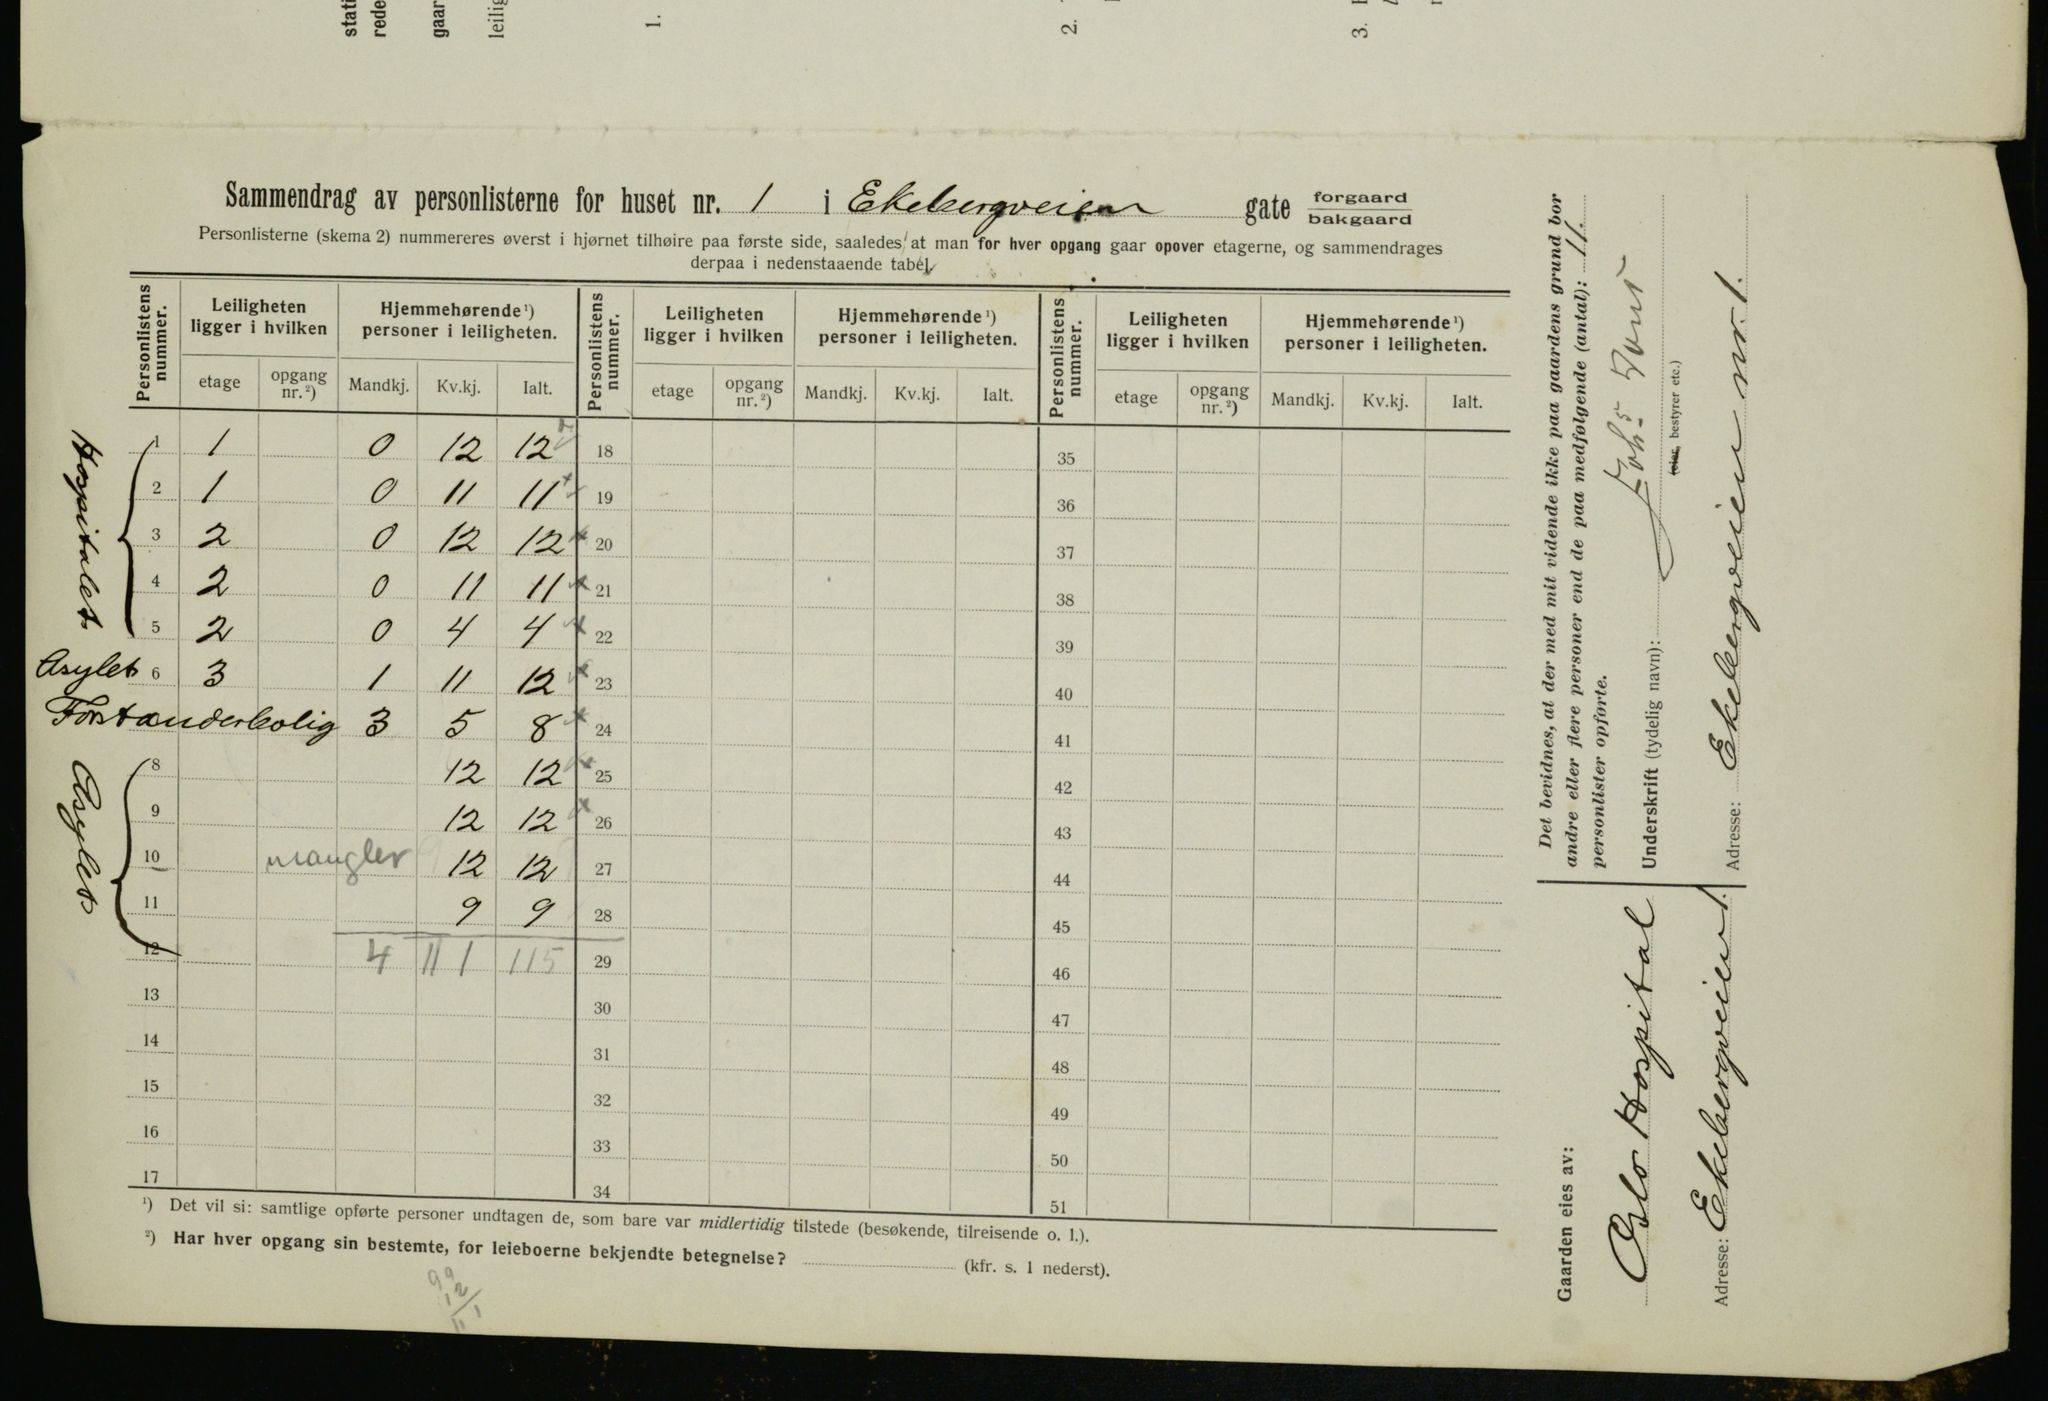 stati
rede
gaar
leilig
1.
2.
3.
Sammendrag av personlisterne for huset nr. 1 i Ekebergveien gate forgaard
bakgaard
Personlisterne (skema 2) nummereres øverst i hjørnet tilhøire paa første side, saaledes at man for hver opgang gaar opover etagerne, og sammendrages
derpaa i nedenstaaende tabel.
Personlistens nummer. Leiligheten ligger i hvilken Hjemmehørende¹) personer i leiligheten. Personlistens nummer. Leiligheten ligger i hvilken Hjemmehørende¹) personer i leiligheten. Personlistens nummer. Leiligheten ligger i hvilken Hjemmehørende¹) personer i leiligheten.
etage opgang nr.²) Mandkj. Kv.kj. Ialt. etage opgang nr.²) Mandkj. Kv.kj. Ialt. etage opgang nr.²) Mandkj. Kv.kj. Ialt.
Hospitalet
1 1 0 12 12 18 35
2 1 0 11 11 19 36
3 2 0 12 12 20 37
4 2 0 11 11 21 38
5 2 0 4 4 22 39
Asylet 6 3 1 11 12 23 40
Forstanderbolig 3 5 8 24 41
Asylet
8 12 12 25 42
9 12 12 26 43
10 mangler 12 12 27 44
11 9 9 28 45
12 4 111 115 29 46
13 30 47
14 31 48
15 32 49
16 33 50
17 34 51
¹) Det vil si: samtlige opførte personer undtagen de, som bare var midlertidig tilstede (besøkende, tilreisende o. l.).
²) Har hver opgang sin bestemte, for leieboerne bekjendte betegnelse? (kfr. s. 1 nederst).
99
12
111
Det bevidnes, at der med mit vidende ikke paa gaardens grund bor
andre eller flere personer end de paa medfølgende (antal): 11.
personlister opførte.
Underskrift (tydelig navn):
(eier, bestyrer etc.)
Adresse: Ekebergveien nr. 1.
Gaarden eies av:
Oslo Hospital
Adresse: Ekebergveien 1.